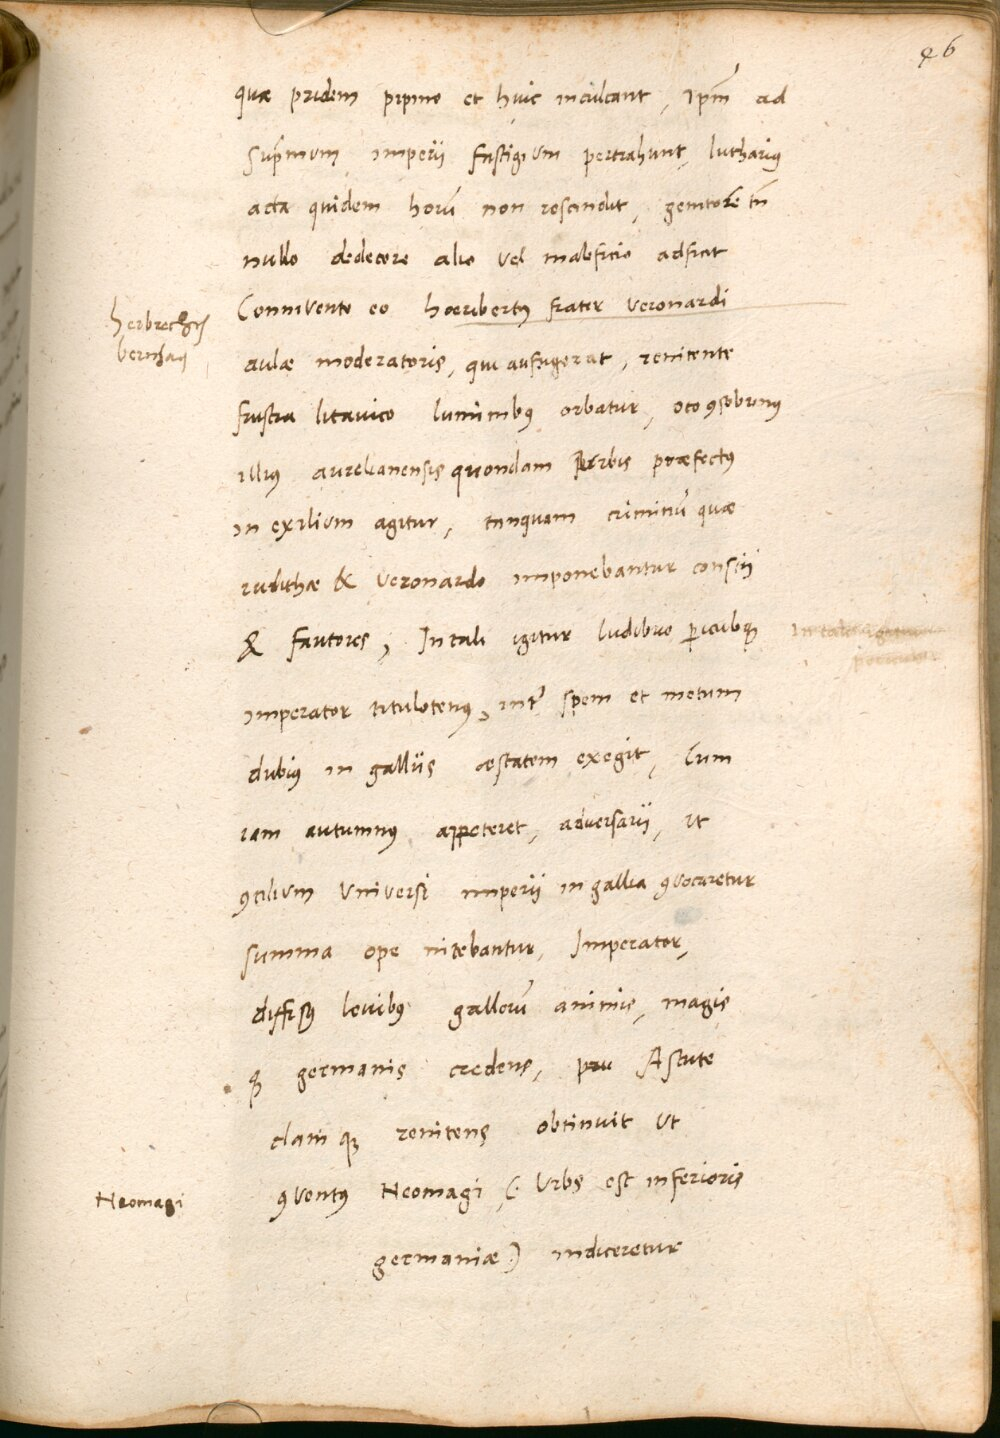 46
quæ pridem pipino et huic inculcant, ipm̃ ad
sup̃mum imperii fastigium pertrahunt, lutharius
acta quidem horũ non rescindit, genitorẽ tñ
nullo dedecore alio vel maleficio adficit
Connivente eo hoeribertus frater veronardi
aulæ moderatoris, qui aufugerat, renitente
frustra litavico luminibꝰ orbatur, oto ꝯsobrinus
illius aurelianensis quondam urbis præfectus
in exilium agitur, tanquam criminũ quæ
iudithæ & veronardo imponebantur conscii
& fautores, In tali igitur ludibrio periculoq;
imperator titulotenus, int̉ spem et metum
dubius in galliis æstatem exegit, Cum
iam autumnus appeteret, adversarii, ut
ꝯcilium universi imperii in gallia ꝯvocaretur
summa ope nitebantur, Imperator,
diffisus levibus gallorũ animis, magis
q; germanis credens, Astute
clam q; renitens obtinuit ut
ꝯventus Neomagi (: Urbs est inferioris
germaniæ :) indiceretur
bernhart
Neomagi
In tali igitur